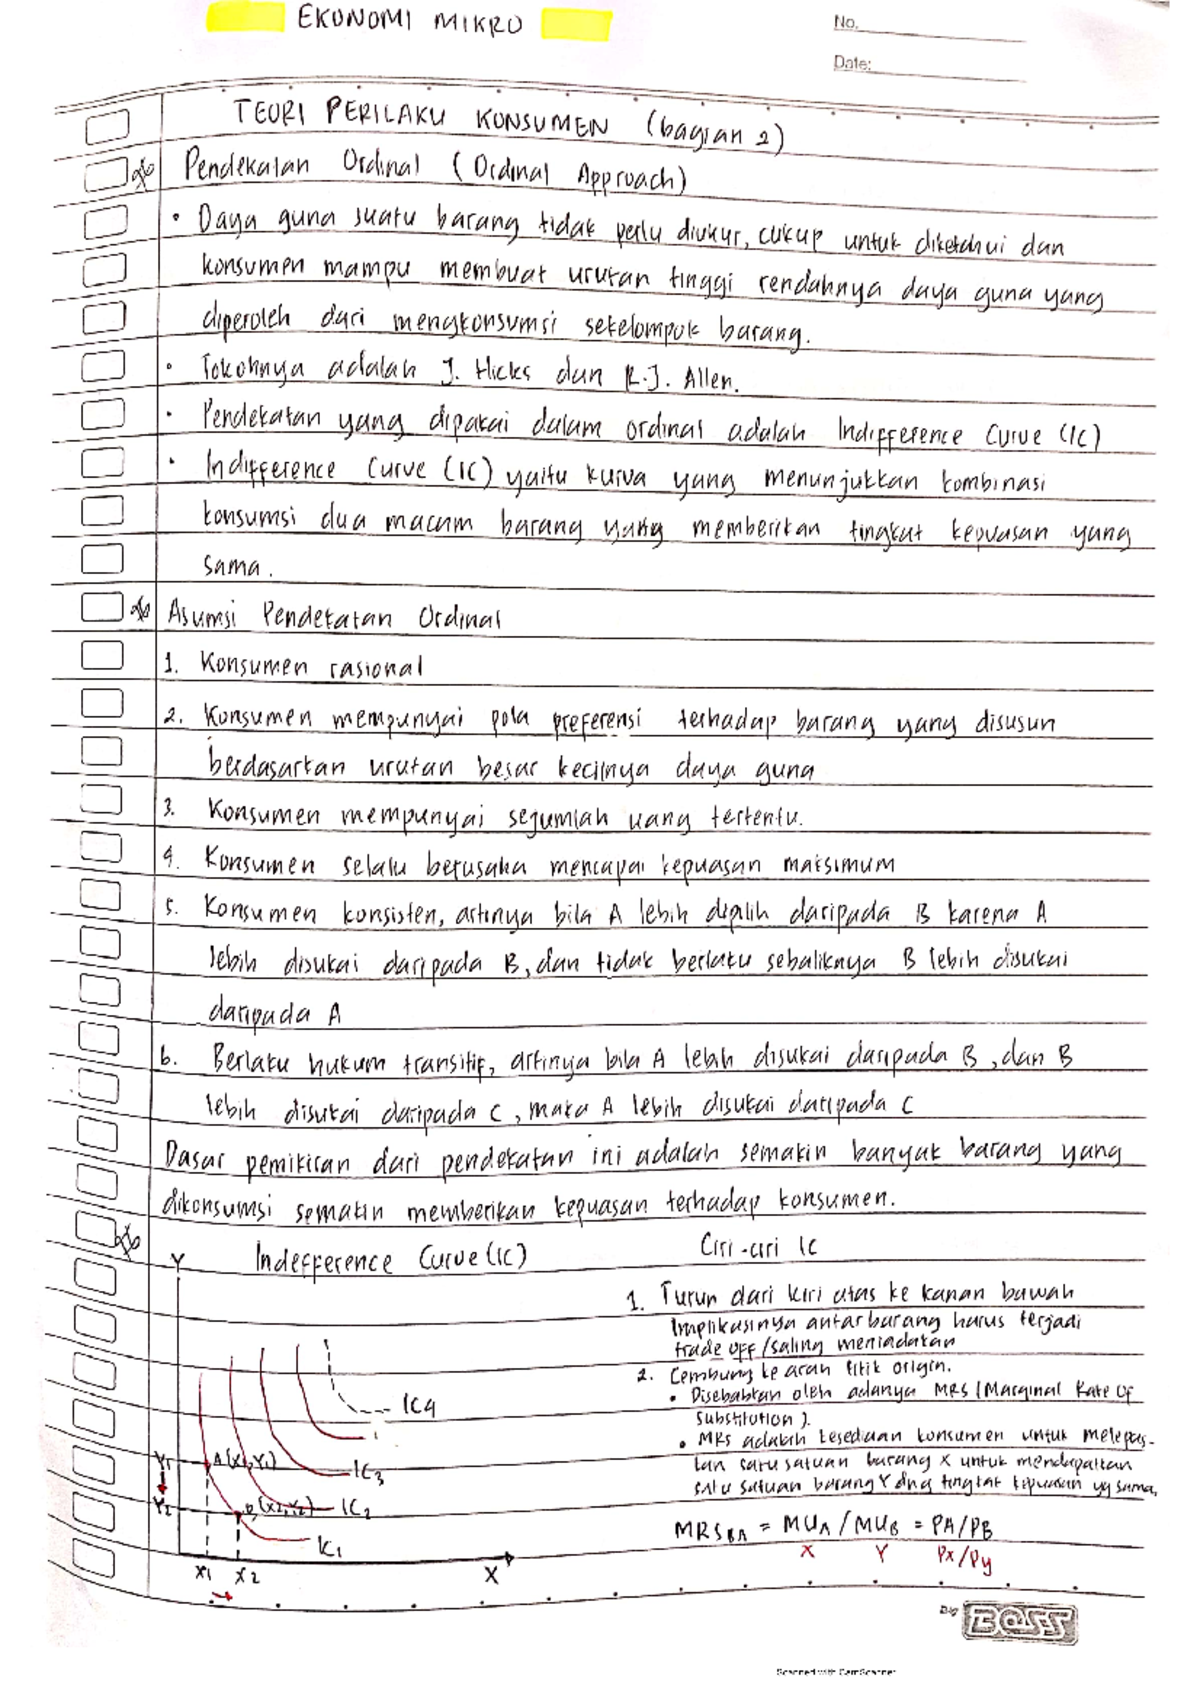 EKONOMI MIKRO
No.
Date:
TEORI PERILAKU KONSUMEN (bagian 2)
Pendekatan Ordinal (Ordinal Approach)
• Daya guna suatu barang tidak perlu diukur, cukup untuk diketahui dan
konsumen mampu membuat urutan tinggi rendahnya daya guna yang
diperoleh dari mengkonsumsi sekelompok barang.
• Tokohnya adalah J. Hicks dan R.J. Allen.
• Pendekatan yang dipakai dalam ordinal adalah Indifference Curve (IC)
• Indifference Curve (IC) yaitu kurva yang menunjukkan kombinasi
konsumsi dua macam barang yang memberikan tingkat kepuasan yang
sama.
Asumsi Pendekatan Ordinal
1. Konsumen rasional
2. Konsumen mempunyai pola preferensi terhadap barang yang disusun
berdasarkan urutan besar kecilnya daya guna
3. Konsumen mempunyai sejumlah uang tertentu.
4. Konsumen selalu berusaha mencapai kepuasan maksimum
5. Konsumen konsisten, artinya bila A lebih dipilih daripada B karena A
lebih disukai daripada B, dan tidak berlaku sebaliknya B lebih disukai
daripada A
6. Berlaku hukum transitif, artinya bila A lebih disukai daripada B, dan B
lebih disukai daripada C, maka A lebih disukai daripada C
Dasar pemikiran dari pendekatan ini adalah semakin banyak barang yang
dikonsumsi semakin memberikan kepuasan terhadap konsumen.
Indefference Curve (IC)
Y
IC4
IC3
IC2
IC1
Y1
A(X1,Y1)
Y2
B(X2,Y2)
X1 X2
X
Ciri-ciri IC
1. Turun dari kiri atas ke kanan bawah
Implikasinya antar barang harus terjadi
trade off/saling meniadakan
2. Cembung ke arah titik origin.
• Disebabkan oleh adanya MRS (Marginal Rate Of
Substitution).
• MRS adalah kesediaan konsumen untuk melepas-
kan satu satuan barang X untuk mendapatkan
satu satuan barang Y dng tingkat kepuasan yg sama.
MRS BA = MUA / MUB = PA/PB
X Y Px/Py
By BOSS
Scanned with CamScanner